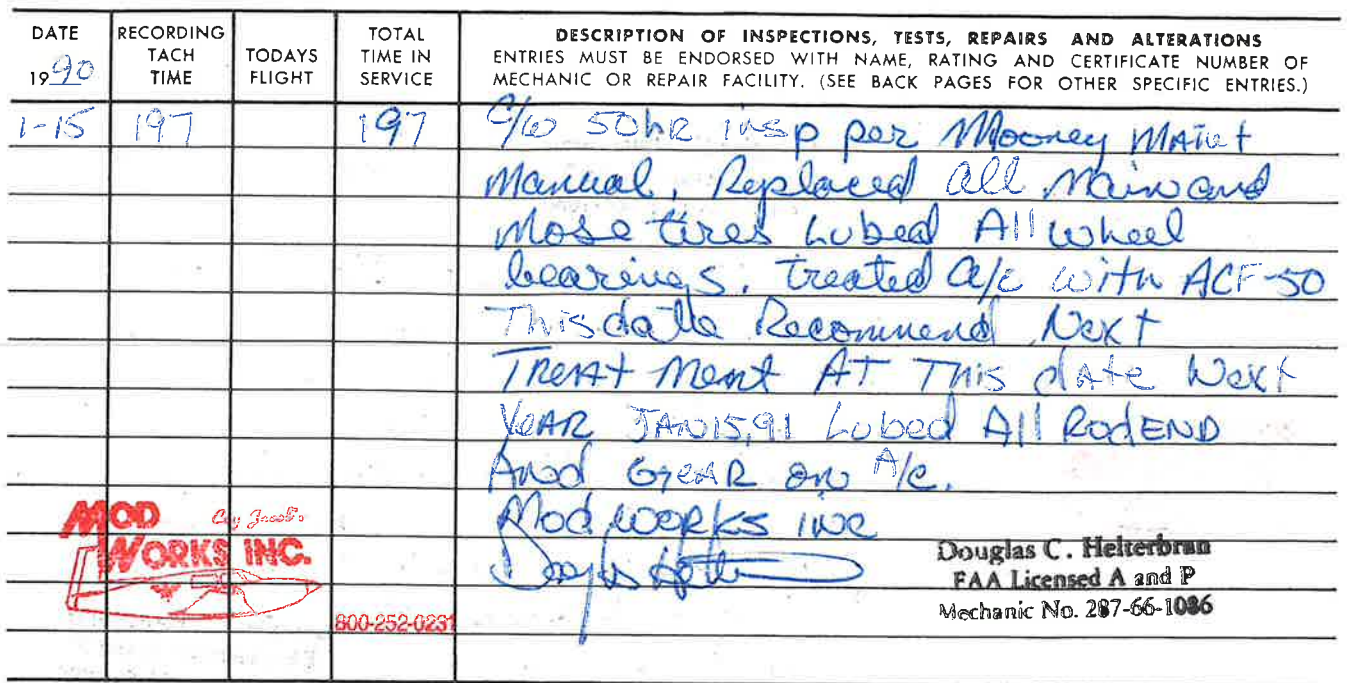 DATE RECORDING TACH TIME TODAYS FLIGHT TOTAL TIME IN SERVICE DESCRIPTION OF INSPECTIONS, TESTS, REPAIRS AND ALTERATIONS
1990 ENTRIES MUST BE ENDORSED WITH NAME, RATING AND CERTIFICATE NUMBER OF
MECHANIC OR REPAIR FACILITY. (SEE BACK PAGES FOR OTHER SPECIFIC ENTRIES.)
1-15 197 197 C/W 50hR insp per Mooney MAint
Manual, Replaced all Main and
Nose tires Lubed All wheel
bearings. treated a/c with ACF-50
This date Recommend Next
TReAt ment AT This dAte Next
YeAR JAN 15, 91 Lubed All Rod END
And GeAR on A/c.
Mod works inc
MOD WORKS INC.
Coy Jacob's
800-252-0231
Douglas C. Helterbran
FAA Licensed A and P
Mechanic No. 287-66-1086